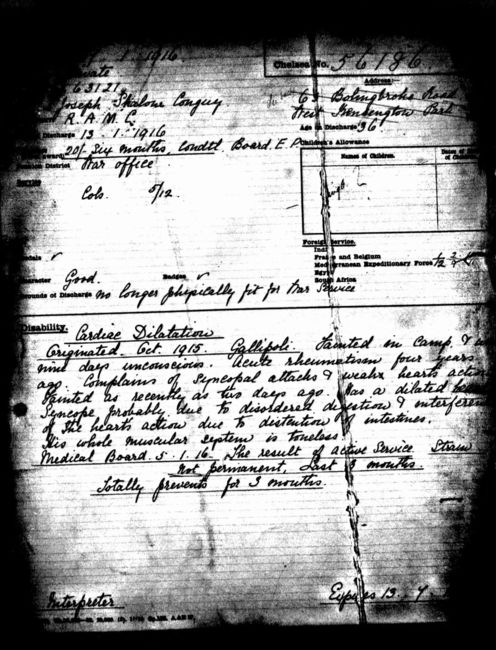 1916
Chelsea No. 56186
Address:
63121
63 Bolingbroke Road
Joseph
West Kensington Park
R. A. M. C.
Age on Discharge 36
Discharge 13. 1. 1916
20/- Six months. Condtl Board. E. P.
Children's Allowance
District War office
Names of Children.
Cols. 5/12.
Foreign Service.
France and Belgium
Mediterranean Expeditionary Force
Egypt
South Africa
Good. Badges
Grounds of Discharge no longer physically fit for War Service
Disability. Cardiac Dilatation
Originated. Oct. 1915. Gallipoli. Fainted in camp &
nine days unconscious. Acute rheumatism four years
ago. Complains of Syncopal attacks & weak hearts action
Fainted as recently as two days ago. Has a dilated
Syncope probably due to disordered digestion &
of the hearts action due to distention of intestines.
His whole muscular system is toneless
Medical Board. 5. 1. 16. The result of active Service. Strain
Not permanent. Last 3 months.
Totally prevents for 3 months.
Interpreter
Expires 13. 7.